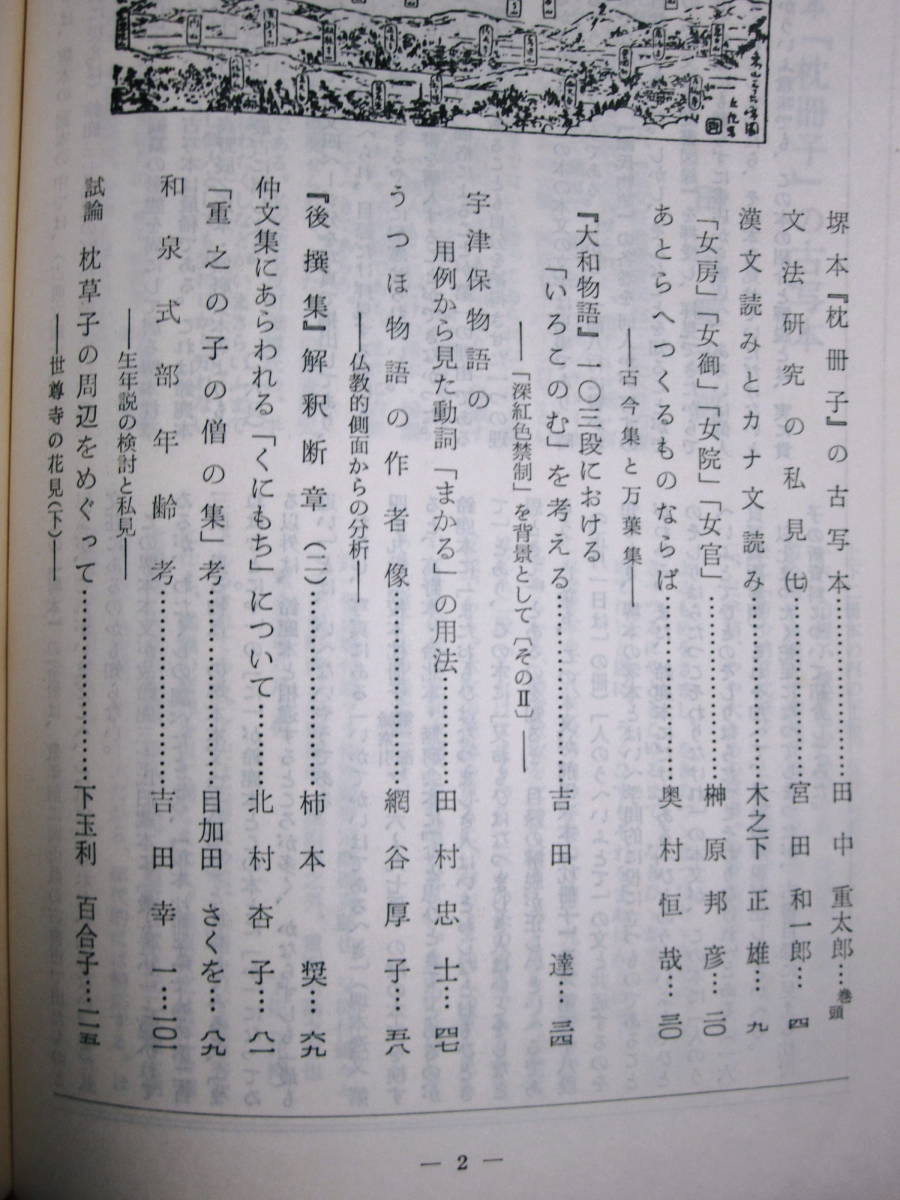 堺本『枕冊子』の古写本……………田中重太郎…巻頭
文法研究の私見(七)……………宮田和一郎…四
漢文読みとカナ文読み……………木之下正雄…九
「女房」「女御」「女院」「女官」……………榊原邦彦…二〇
あとらへつくるものならば……………奥村恒哉…三〇
――古今集と万葉集――
『大和物語』一〇三段における
「いろこのむ」を考える……………吉田達…三四
――「深紅色禁制」を背景として〔そのⅡ〕――
宇津保物語の
用例から見た動詞「まかる」の用法……………田村忠士…四七
うつほ物語の作者像……………網谷厚子…五八
――仏教的側面からの分析――
『後撰集』解釈断章(二)……………柿本奨…六九
仲文集にあらわれる「くにもち」について……………北村杏子…八一
「重之の子の僧の集」考……………目加田さくを…八九
和泉式部年齢考……………吉田幸一…一〇一
――生年説の検討と私見――
試論 枕草子の周辺をめぐって……………下玉利百合子…一一五
――世尊寺の花見(下)――
― 2 ―